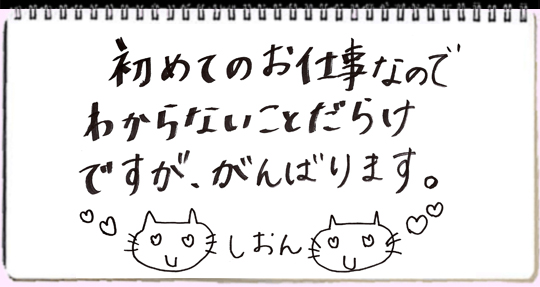 初めてのお仕事なので
わからないことだらけ
ですが、がんばります。
しおん